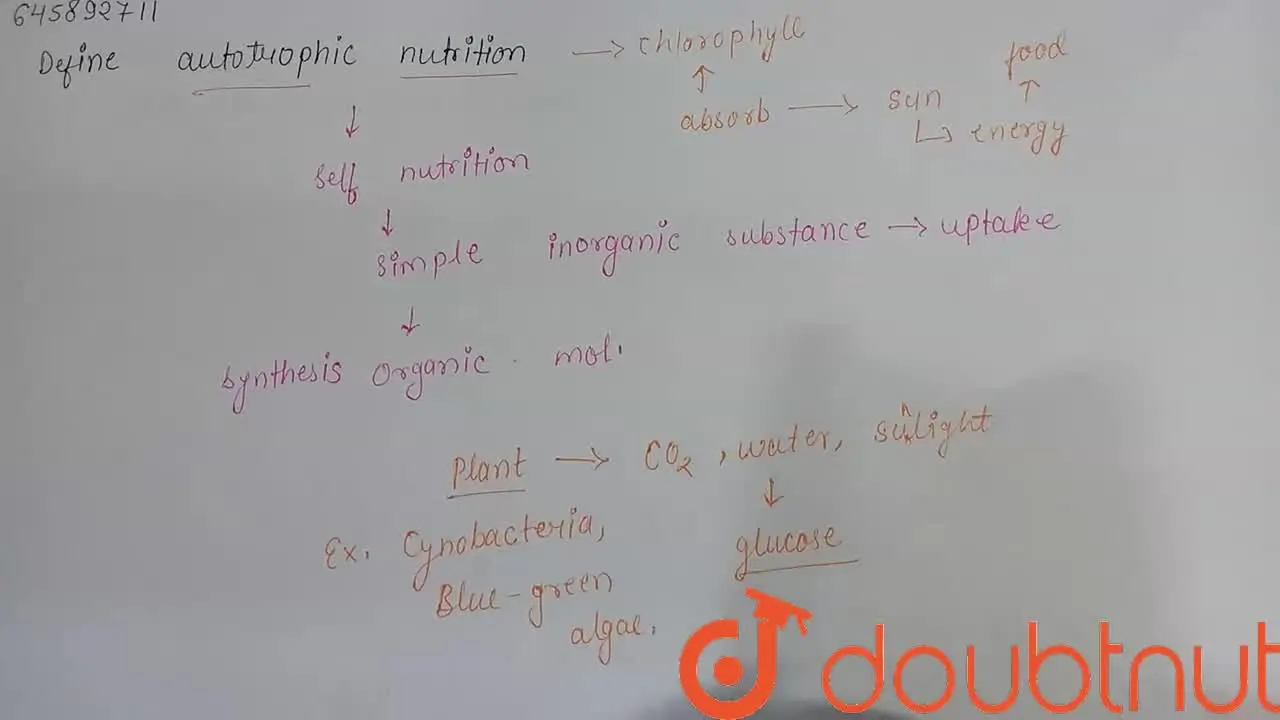 645892711
Define autotrophic nutrition → chlorophyll
food
↑
absorb → sun
↳ energy
↓
self nutrition
↓
simple inorganic substance → uptake
↓
synthesis organic. mol.
Plant → CO2, water, sunlight
↓
glucose
Ex. Cynobacteria,
Blue-green
algae.
doubtnut